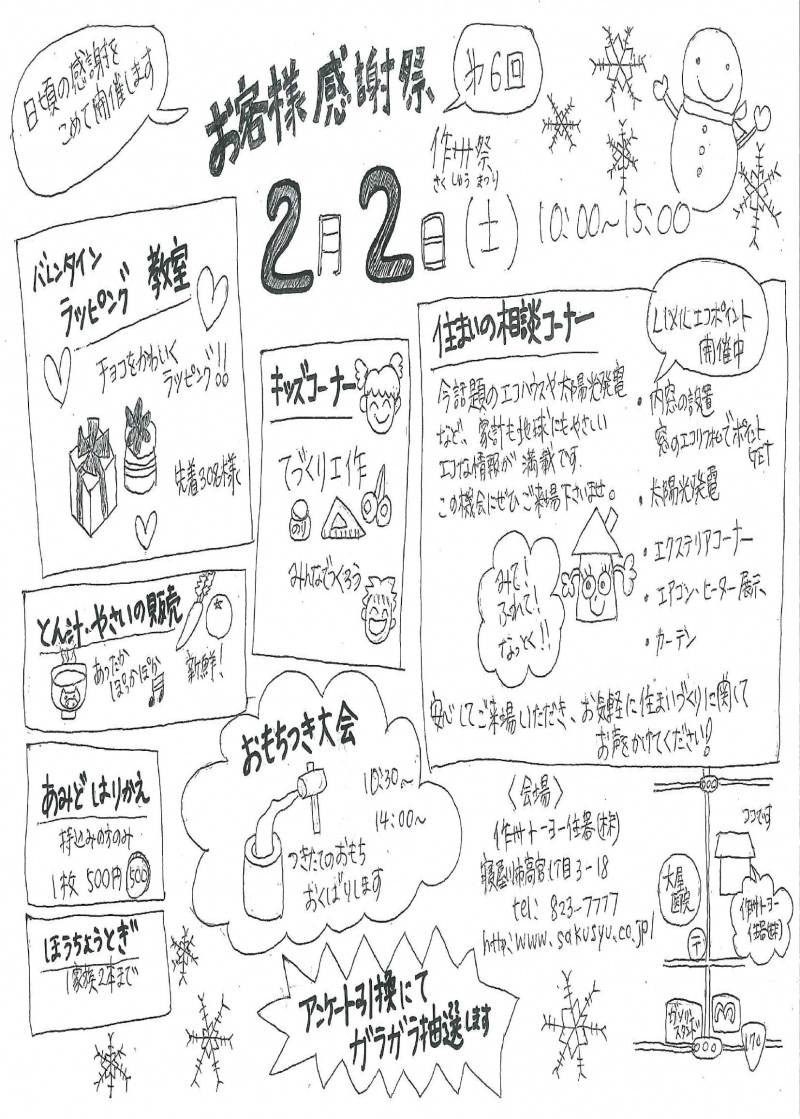 日頃の感謝を
こめて開催します
お客様感謝祭
第6回
作州祭
さくしゅうまつり
2月2日(土) 10:00~15:00
バレンタイン
ラッピング 教室
チョコをかわいく
ラッピング!!
先着30名様
キッズコーナー
てづくり工作
のり
みんなでつくろう
住まいの相談コーナー
LiXiLエコポイント
開催中
今話題のエコハウスや太陽光発電
など、家計も地球にもやさしい
エコな情報が満載です.
この機会にぜひご来場下さいませ。
・内窓の設置
窓のエコリフォームでポイント
GET
・太陽光発電
・エクステリアコーナー
・エアコン・ヒーター展示、
・カーテン
みて!
ふれて!
なっとく!!
安心してご来場いただき、お気軽に住まいづくりに関して
お声をかけてください!
とん汁・やさいの販売
あったか
ぽっかぽか
新鮮!
おもちつき大会
10:30~
14:00~
つきたてのおもち
おくばりします
あみどはりかえ
持込みの方のみ
1枚 500円
500
ほうちょうとぎ
1家族2本まで
アンケート引換にて
ガラガラ抽選します
〈会場〉
作州トーヨー住器(株)
寝屋川市高宮1丁目3-18
tel: 823-7777
http:www.sakusyu.co.jp/
ココです
大屋
医院
作州トーヨー
住器(株)
〒
ガソリン
スタンド
M
170